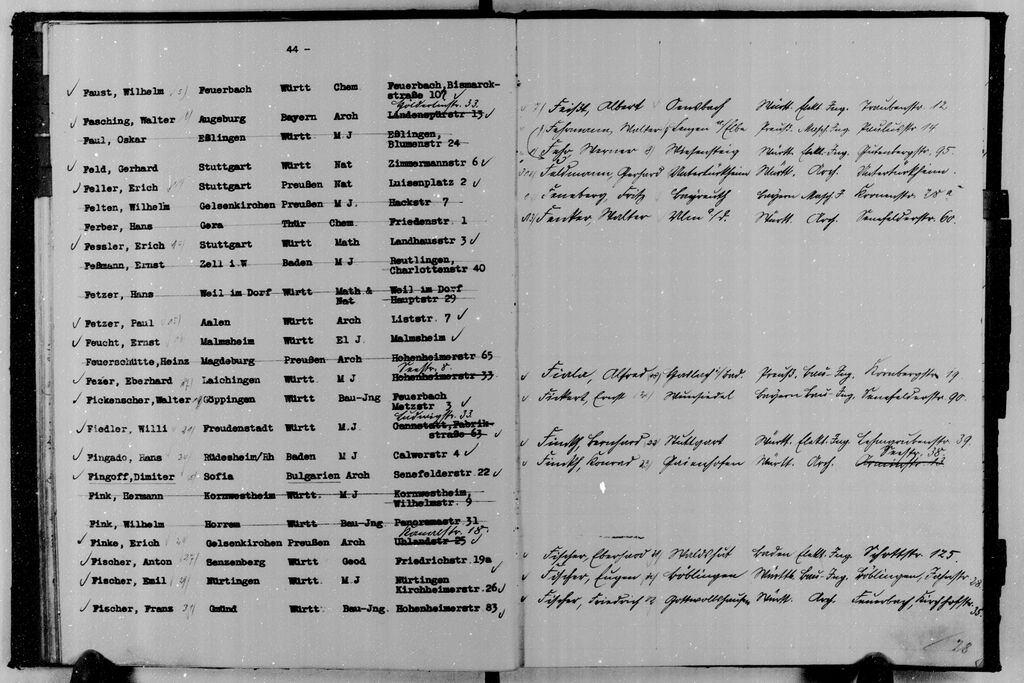 44 -
Faust, Wilhelm Feuerbach Württ Chem Feuerbach, Bismarck-
straße 107
Hölderlinstr. 33
Fasching, Walter Augsburg Bayern Arch Lindenspürstr 13
Paul, Oskar Eßlingen Württ M J Eßlingen,
Blumenstr 24
Feld, Gerhard Stuttgart Württ Nat Zimmermannstr 6
Feller, Erich Stuttgart Preußen Nat Luisenplatz 2
Felten, Wilhelm Gelsenkirchen Preußen M J. Hackstr 7
Ferber, Hans Gera Thür Chem. Friedenstr. 1
Fessler, Erich Stuttgart Württ Math Landhausstr 3
Feßmann, Ernst Zell i.W Baden M J Reutlingen,
Charlottenstr 40
Fetzer, Hans Weil im Dorf Württ Math & Weil im Dorf
Nat Hauptstr 29
Fetzer, Paul Aalen Württ Arch Liststr. 7
Feucht, Ernst Malmsheim Württ El J. Malmsheim
Feuerschütte, Heinz Magdeburg Preußen Arch Hohenheimerstr 65
Seestr. 8.
Fezer, Eberhard Laichingen Württ M J Hohenheimerstr 33
Fickenscher, Walter Göppingen Württ Bau-Jng Feuerbach
Metzstr 3
Ludwigstr. 33
Fiedler, Willi Freudenstadt Württ M.J. Cannstatt, Fabrik-
straße 63
Fingado, Hans Rüdesheim/Rh Baden M J Calwerstr 4
Fingoff, Dimiter Sofia Bulgarien Arch Senefelderstr 22
Fink, Hermann Kornwestheim Württ. M J Kornwestheim,
Wilhelmstr. 9
Fink, Wilhelm Horrem Württ Bau-Jng Panoramastr 31
Kanalstr. 18.
Finke, Erich Gelsenkirchen Preußen Arch Uhlandstr 25
Fischer, Anton Senzenberg Württ Geod Friedrichstr 19a
Fischer, Emil Nürtingen Württ. M.J Nürtingen
Kirchheimerstr. 26
Fischer, Franz Gmünd Württ Bau-Jng. Hohenheimerstr 83
Albert Württ. Elekt. Ing. Traubenstr. 12
Walter Preuß. Masch. Ing. Paulusstr 14.
Fehr, Werner Wiesensteig Württ. Elekt. Ing. Gutenbergstr. 95.
Feldmann, Gerhard Untertürkheim Württ. Arch. Untertürkheim.
Fritz Bayreuth Bayern Masch. J. Kronenstr. 28 a
Walter Ulm a/d. Württ. Arch. Senefelderstr. 60.
Alfred Preuß. Bau-Ing. Kornbergstr 19.
Fickert, Ernst Wunsiedel Bayern Bau-Ing. Senefelderstr. 90.
Finckh, Bernhard Stuttgart Württ. Elekt. Ing. Lehmgrubenstr. 39.
Seestr. 38.
Finckh, Konrad Gaienhofen Württ. Arch.
Fischer, Eberhard Waldshut Baden Elekt. Ing. Schottstr. 125.
Fischer, Eugen Böblingen Württb. Bau-Ing. Böblingen,
Fischer, Friedrich Gottwollshausen Württ. Arch. Feuerbach, Kirchhofstr. 35.
28